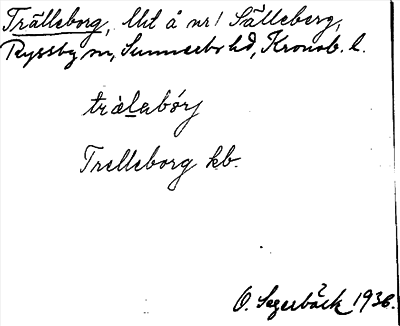 Trälleborg, lht å nr 1 Sälleberg,
Ryssby sn, Sunnerbo hd, Kronob. l.
tràlabórj
Trelleborg kb.
O. Segerbäck 1936.